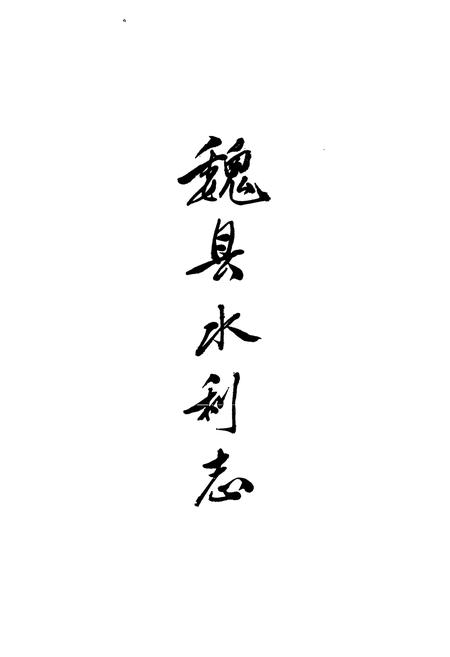 魏县水利志